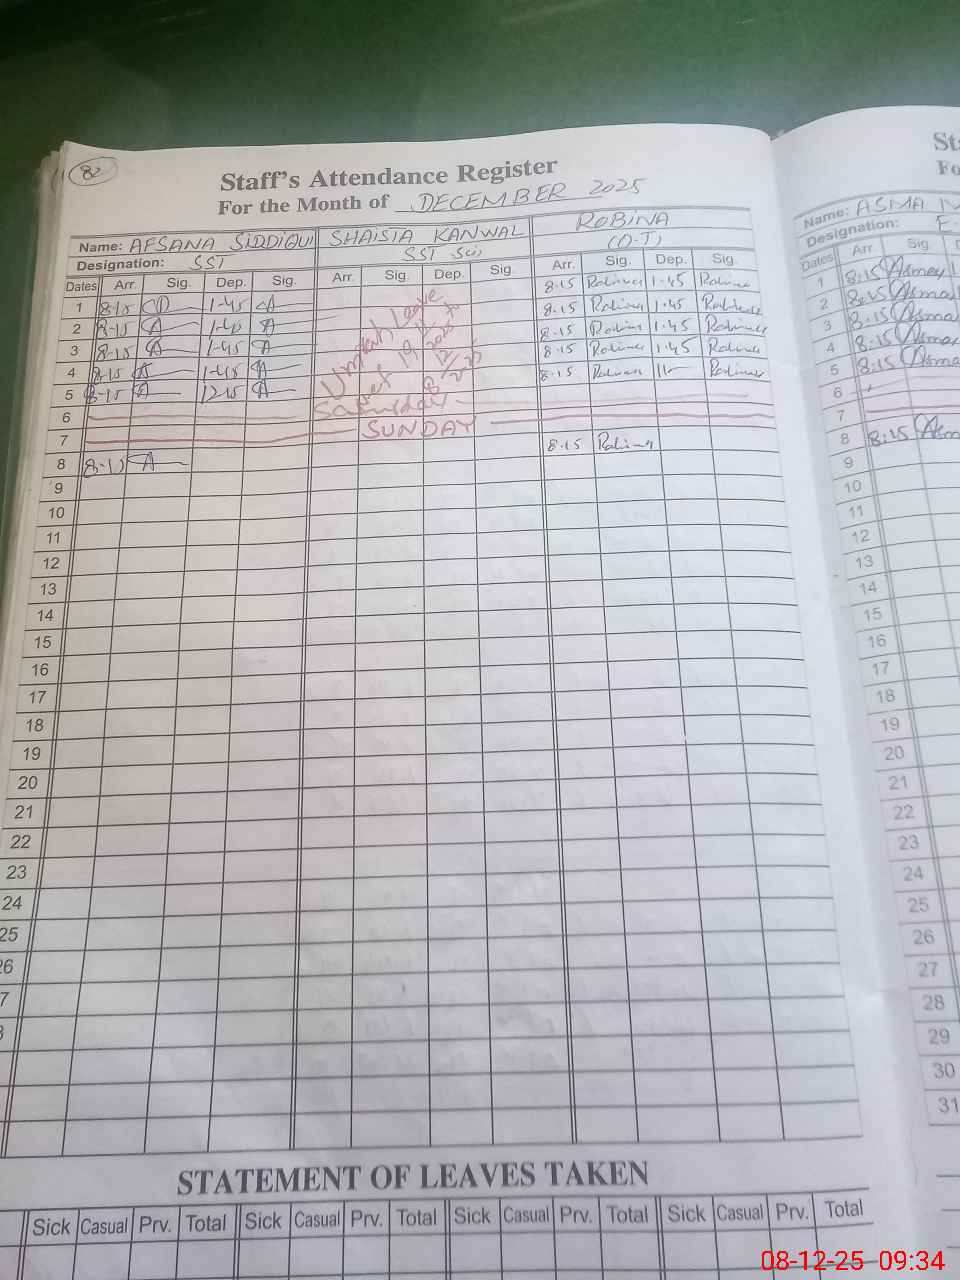 82
Staff's Attendance Register
For the Month of DECEMBER 2025
Name: AFSANA SIDDIQUI SHAISTA KANWAL ROBINA
Designation: SST SST Sci (O.T)
Dates Arr. Sig. Dep. Sig. Arr. Sig. Dep. Sig. Arr. Sig. Dep. Sig.
8.15 Robina 1.45 Robina
1 8-15 1-45 A 8.15 Robina 1.45 Robina
2 8-15 A 1-45 A 8-15 Robina 1.45 Robina
3 8-15 A 1-45 A 8.15 Robina 1.45 Robina
4 8-15 A 1-45 A 8.15 Robina Robina
5 8-15 A 12-15 A
Umrah Leave
6 Saturday
7 SUNDAY
8.15 Robina
8 8-15 A
9
10
11
12
13
14
15
16
17
18
19
20
21
22
23
24
25
26
7
STATEMENT OF LEAVES TAKEN
Sick Casual Prv. Total Sick Casual Prv. Total Sick Casual Prv. Total Sick Casual Prv. Total
Name: ASMA
Designation:
Dates Arr. Sig.
1 8:15 Asma
2 8:15 Asma
3 8:15 Asma
4 8:15 Asma
5 8:15 Asma
6
7
8 8:15 Asm
9
10
11
12
13
14
15
16
17
18
19
20
21
22
23
24
25
26
27
28
29
30
31
08-12-25 09:34